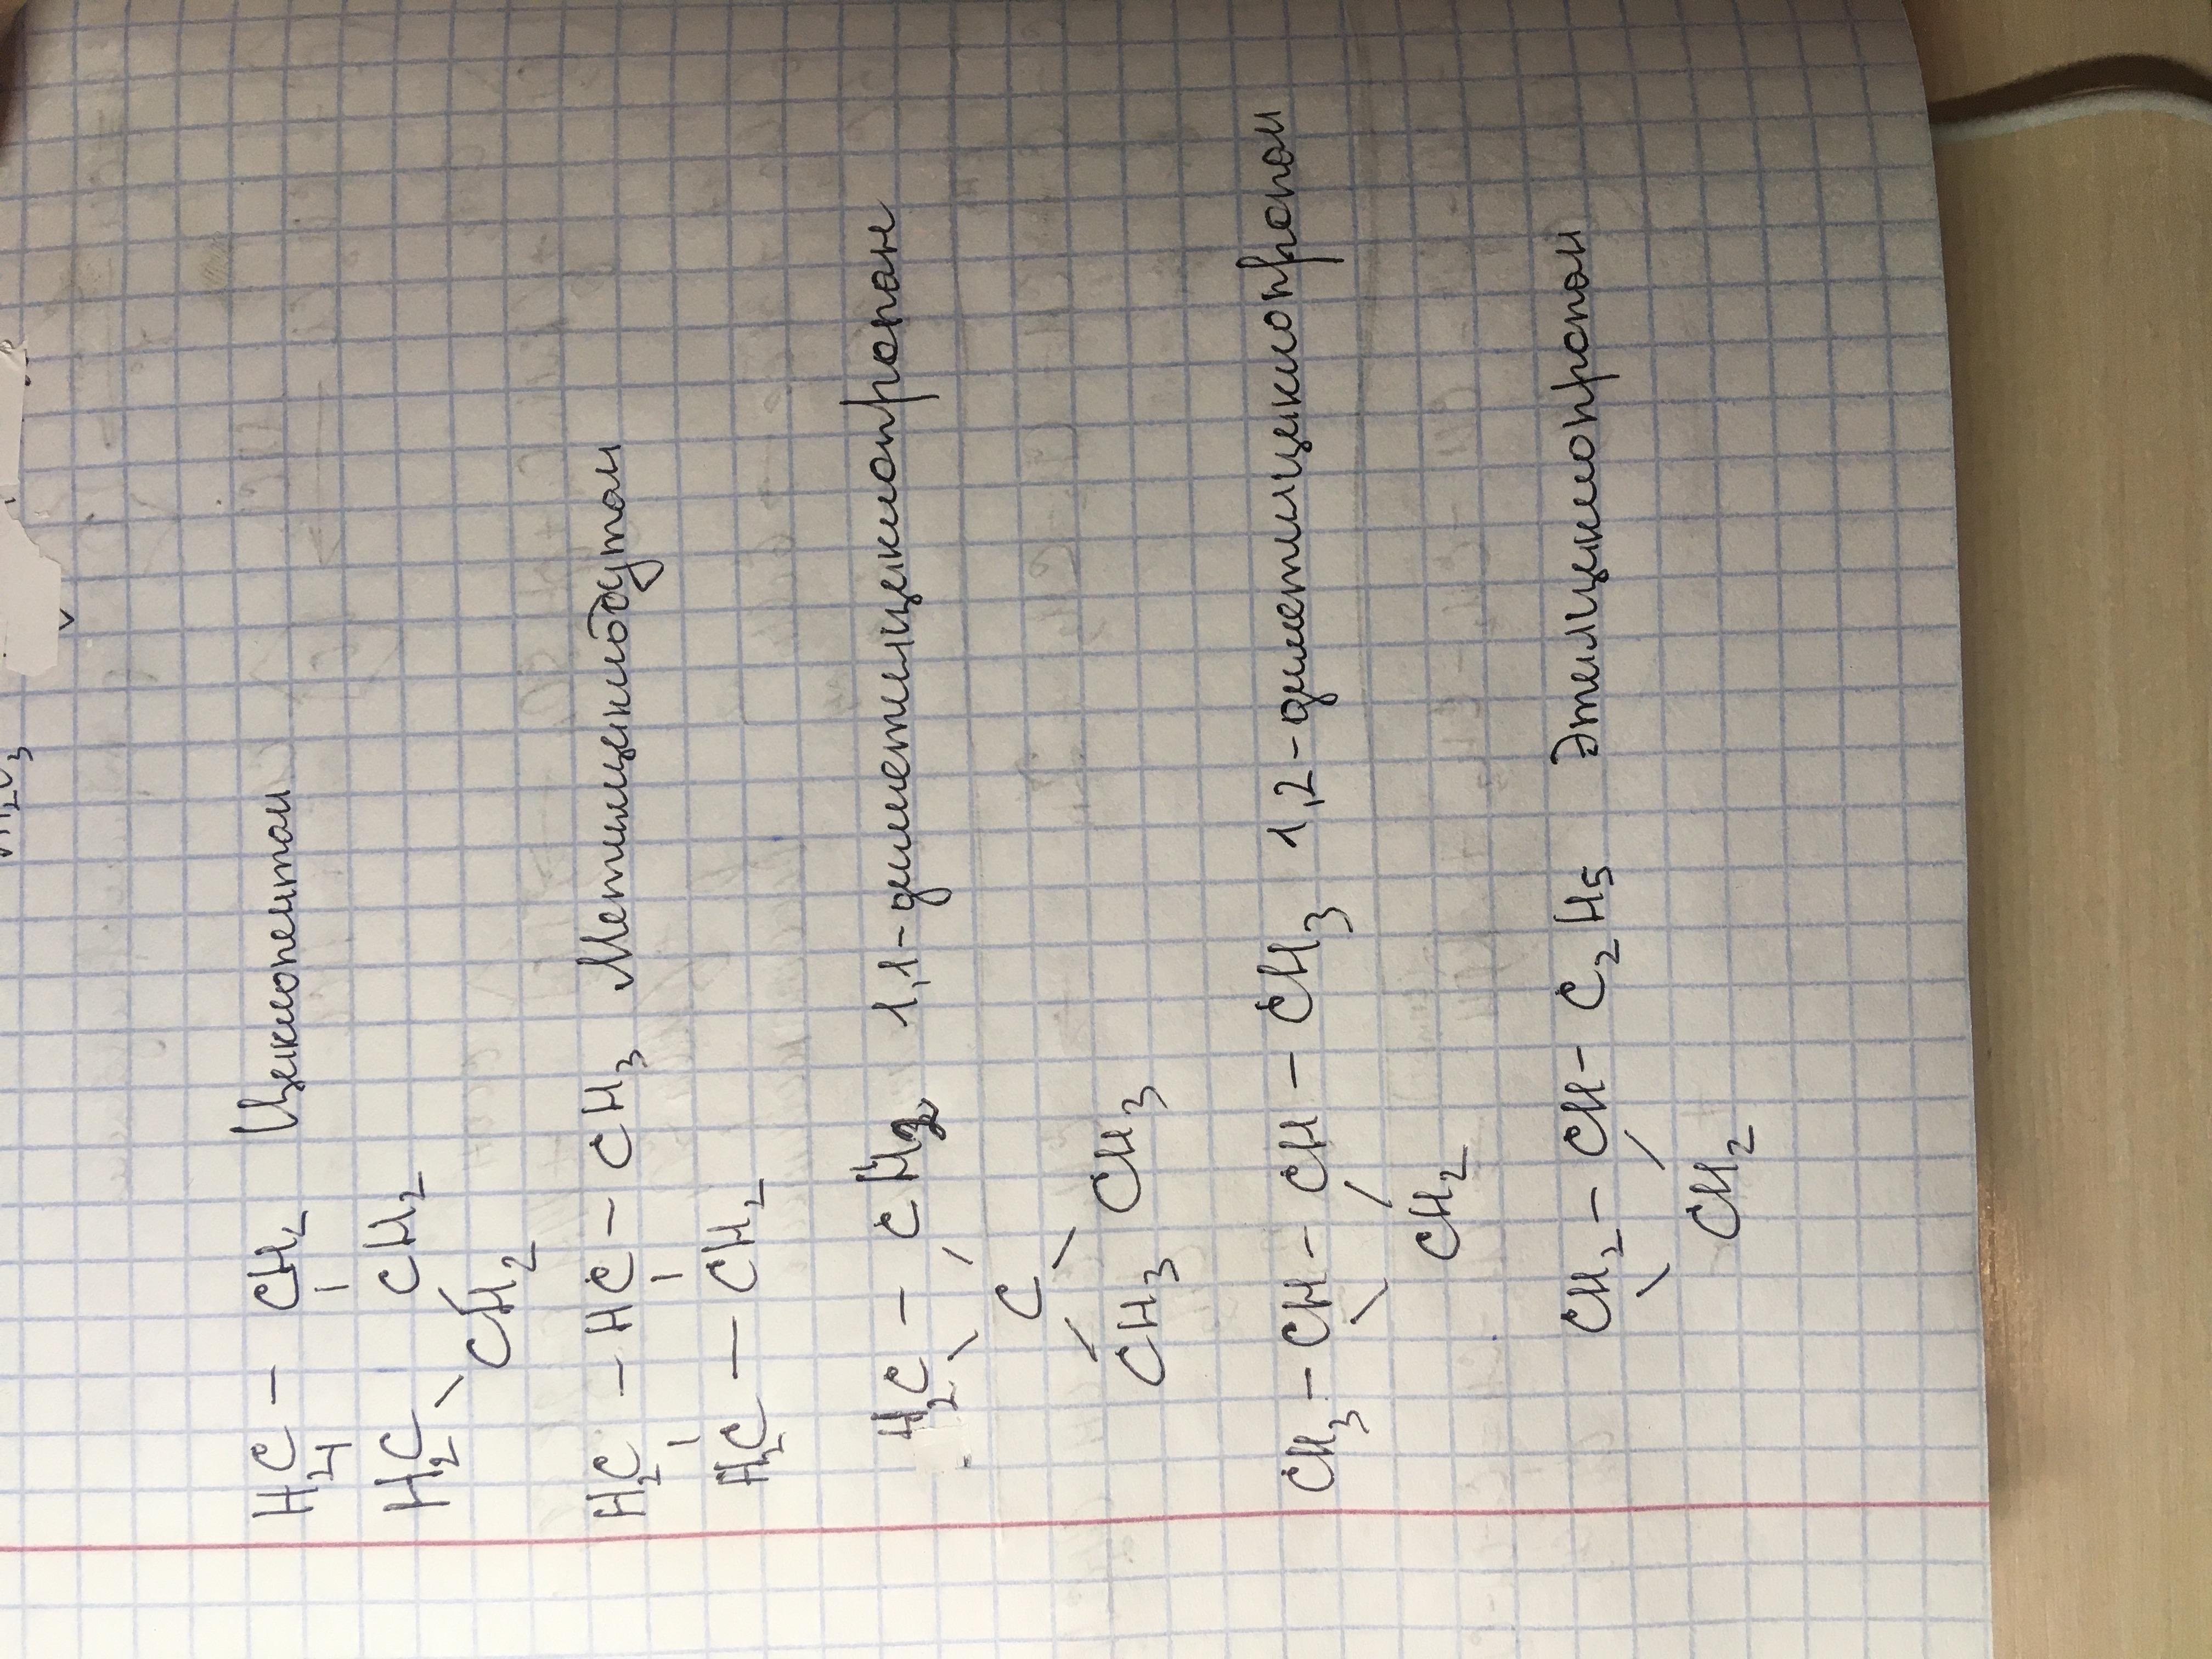 H₂C – CH₂ Циклопентан
H₂C CH₂
CH₂
H₂C – HC – CH₃ Метилциклобутан
H₂C – CH₂
H₂C – CH₂ 1,1-диметилциклопропан
C
CH₃ CH₃
CH₃ – CH – CH – CH₃ 1,2-диметилциклопропан
CH₂
CH₂ – CH – C₂H₅ Этилциклопропан
CH₂